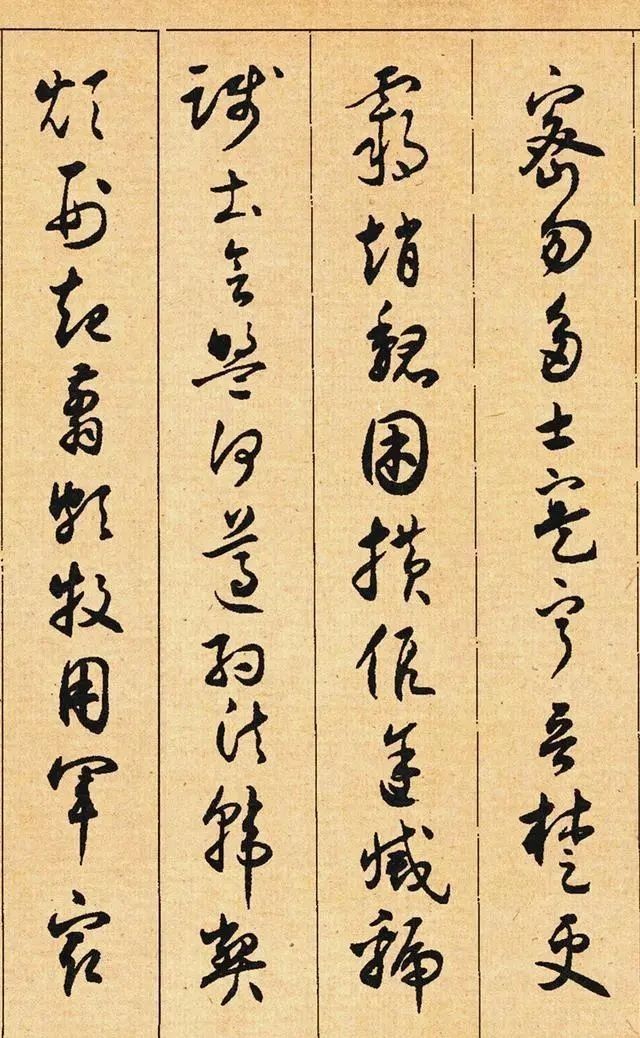 密勿多士寔寧晉楚更
霸趙魏困橫假途滅虢
踐土會盟何遵約法韓弊
煩刑起翦頗牧用軍最